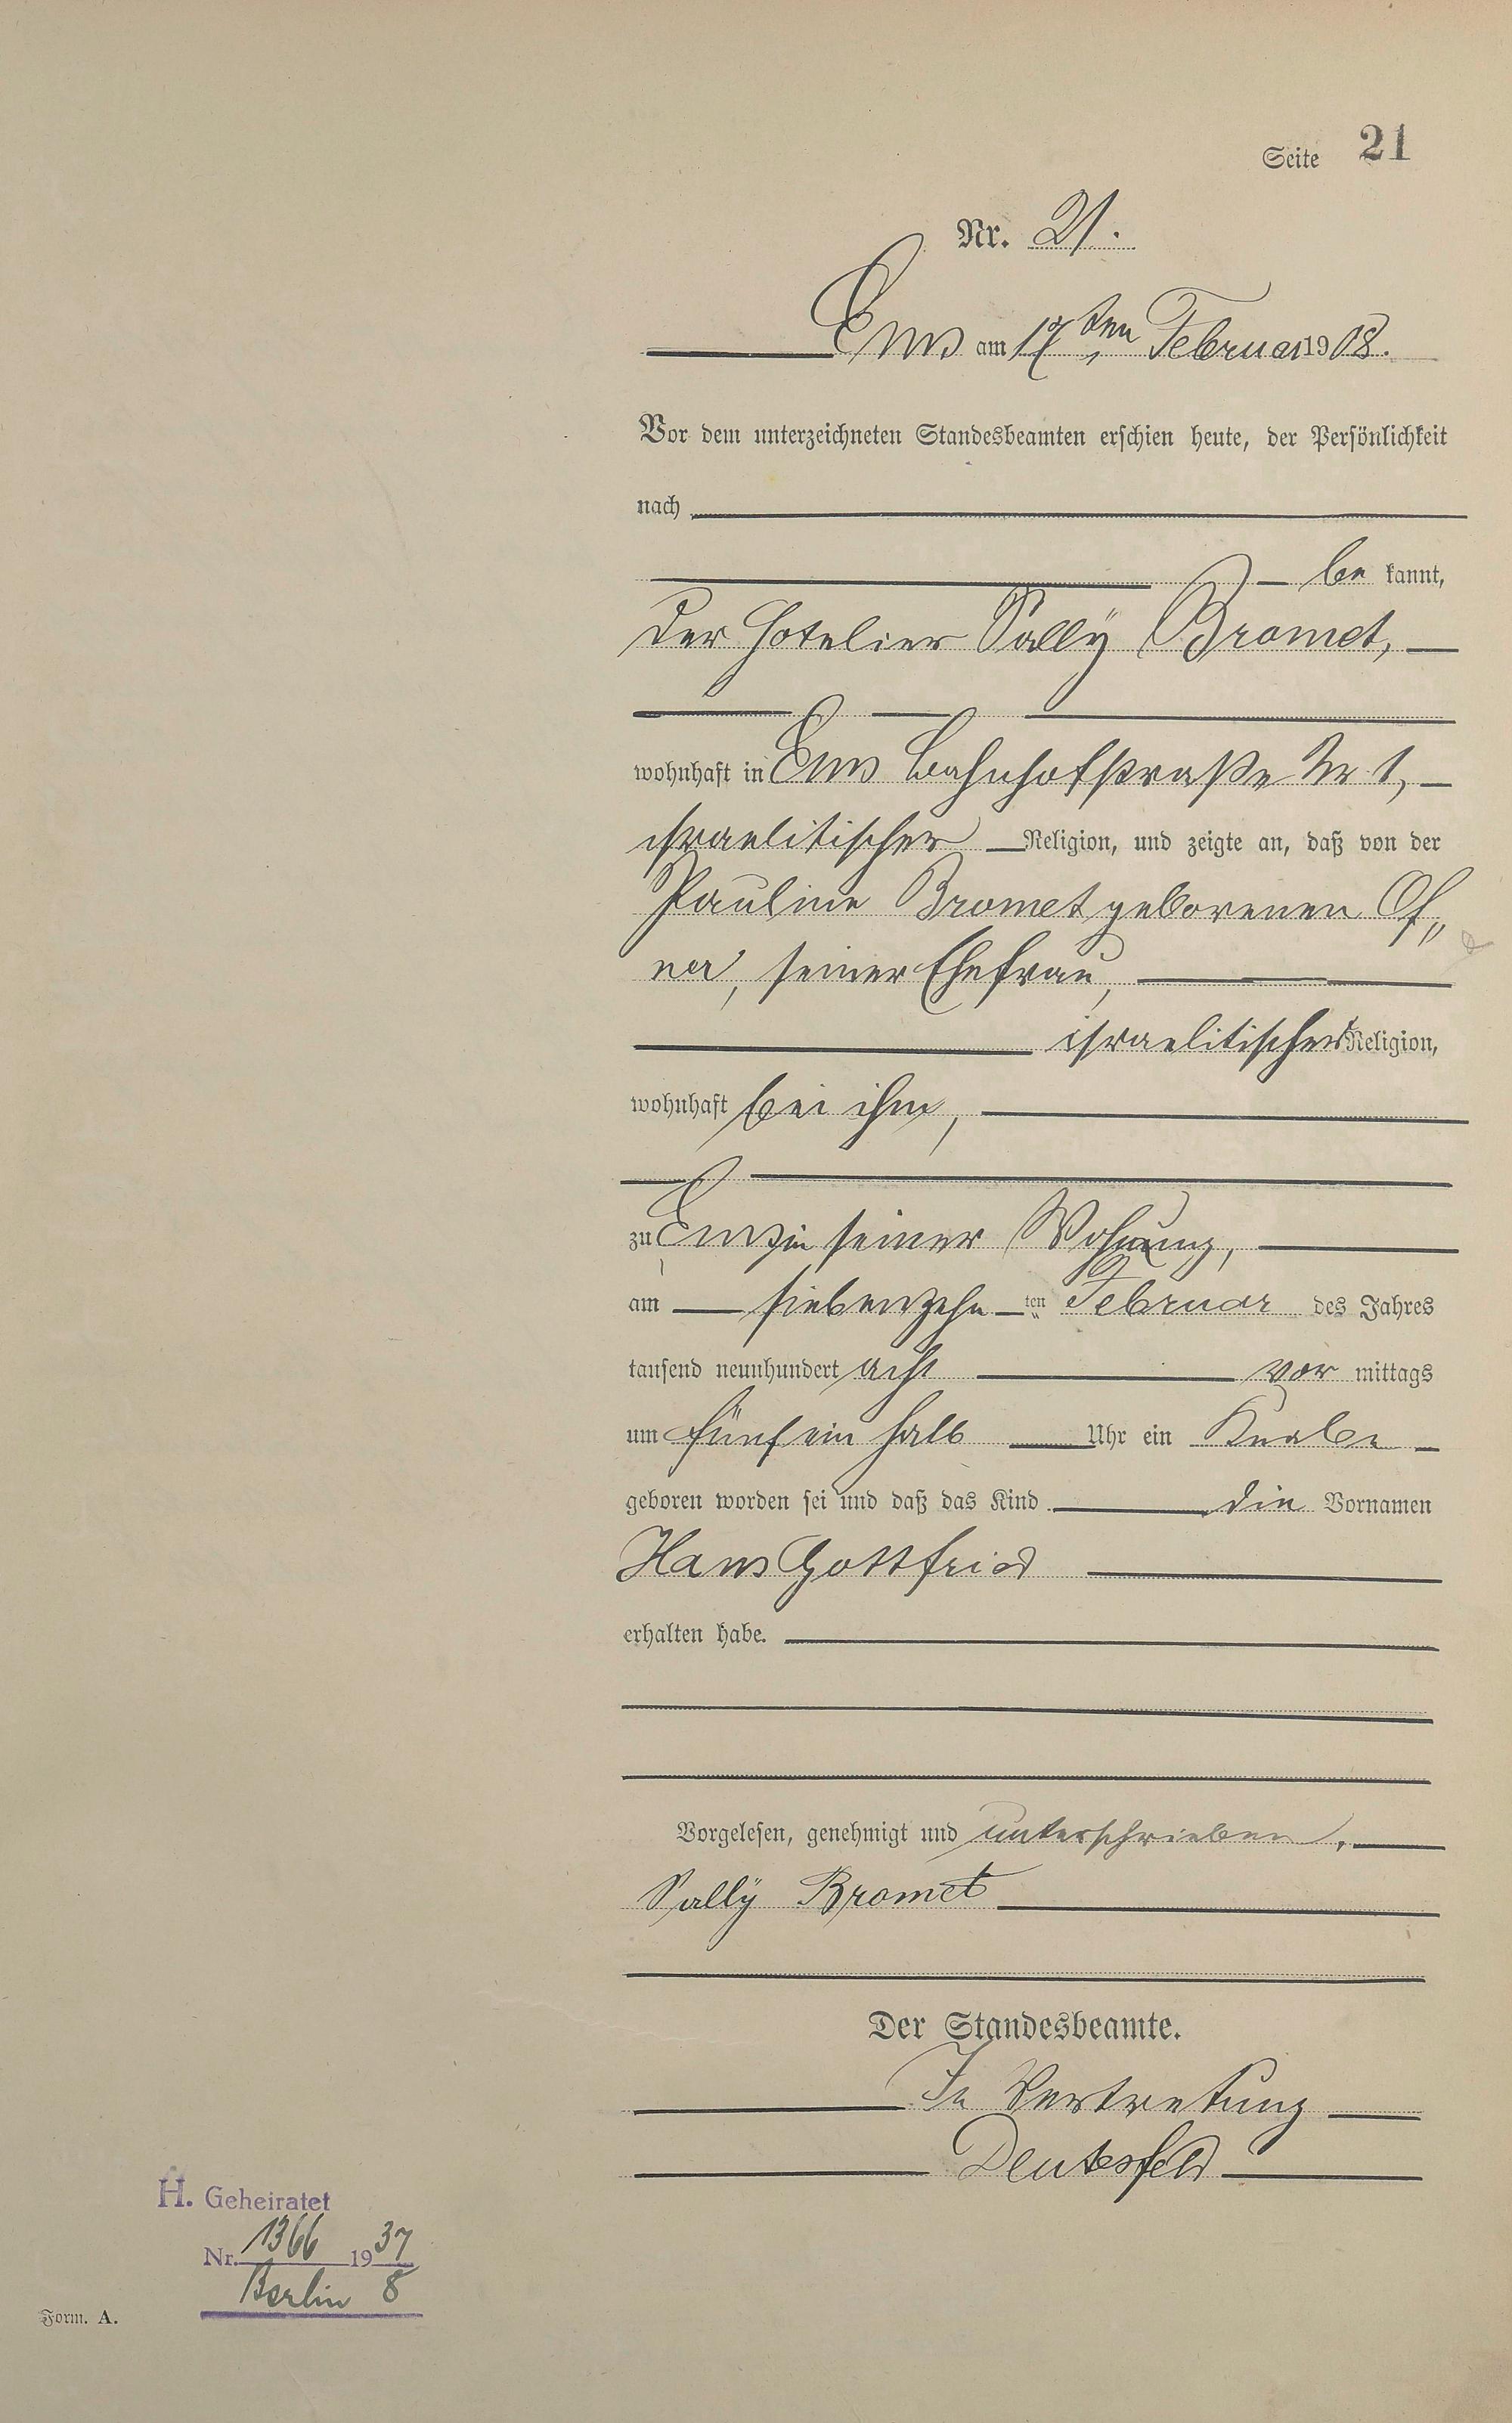 Seite 21
Nr. 21.
Ems am 17ten Februar 1908.
Vor dem unterzeichneten Standesbeamten erschien heute, der Persönlichkeit
nach
be kannt,
der Hotelier Sally Bromet,
wohnhaft in Ems Bahnhofstraße Nr 1,
israelitischer Religion, und zeigte an, daß von der
Pauline Bromet geborenen Of„
ner, seiner Ehefrau,
israelitischer Religion,
wohnhaft bei ihm,
zu Ems in seiner Wohnung,
am siebenzehn ten Februar des Jahres
tausend neunhundert acht vor mittags
um fünf ein halb Uhr ein Knabe
geboren worden sei und daß das Kind die Vornamen
Hans Gottfried
erhalten habe.
Vorgelesen, genehmigt und unterschrieben.
Sally Bromet
Der Standesbeamte.
In Vertretung
Deutesfeld
H. Geheiratet
Nr. 1366 1937
Berlin 8
Form. A.